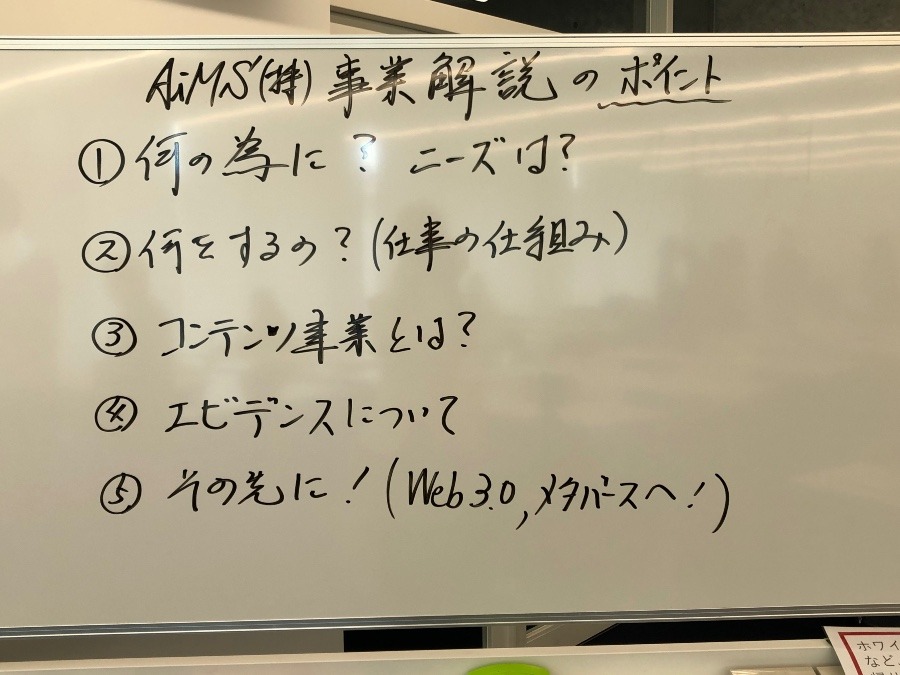 AiMS(株)事業解説のポイント
①何の為に？ ニーズは？
②何をするの？(仕事の仕組み)
③コンテンツ事業とは？
④エビデンスについて
⑤その先に！(Web3.0,メタバースへ！)
ホワイ
など、